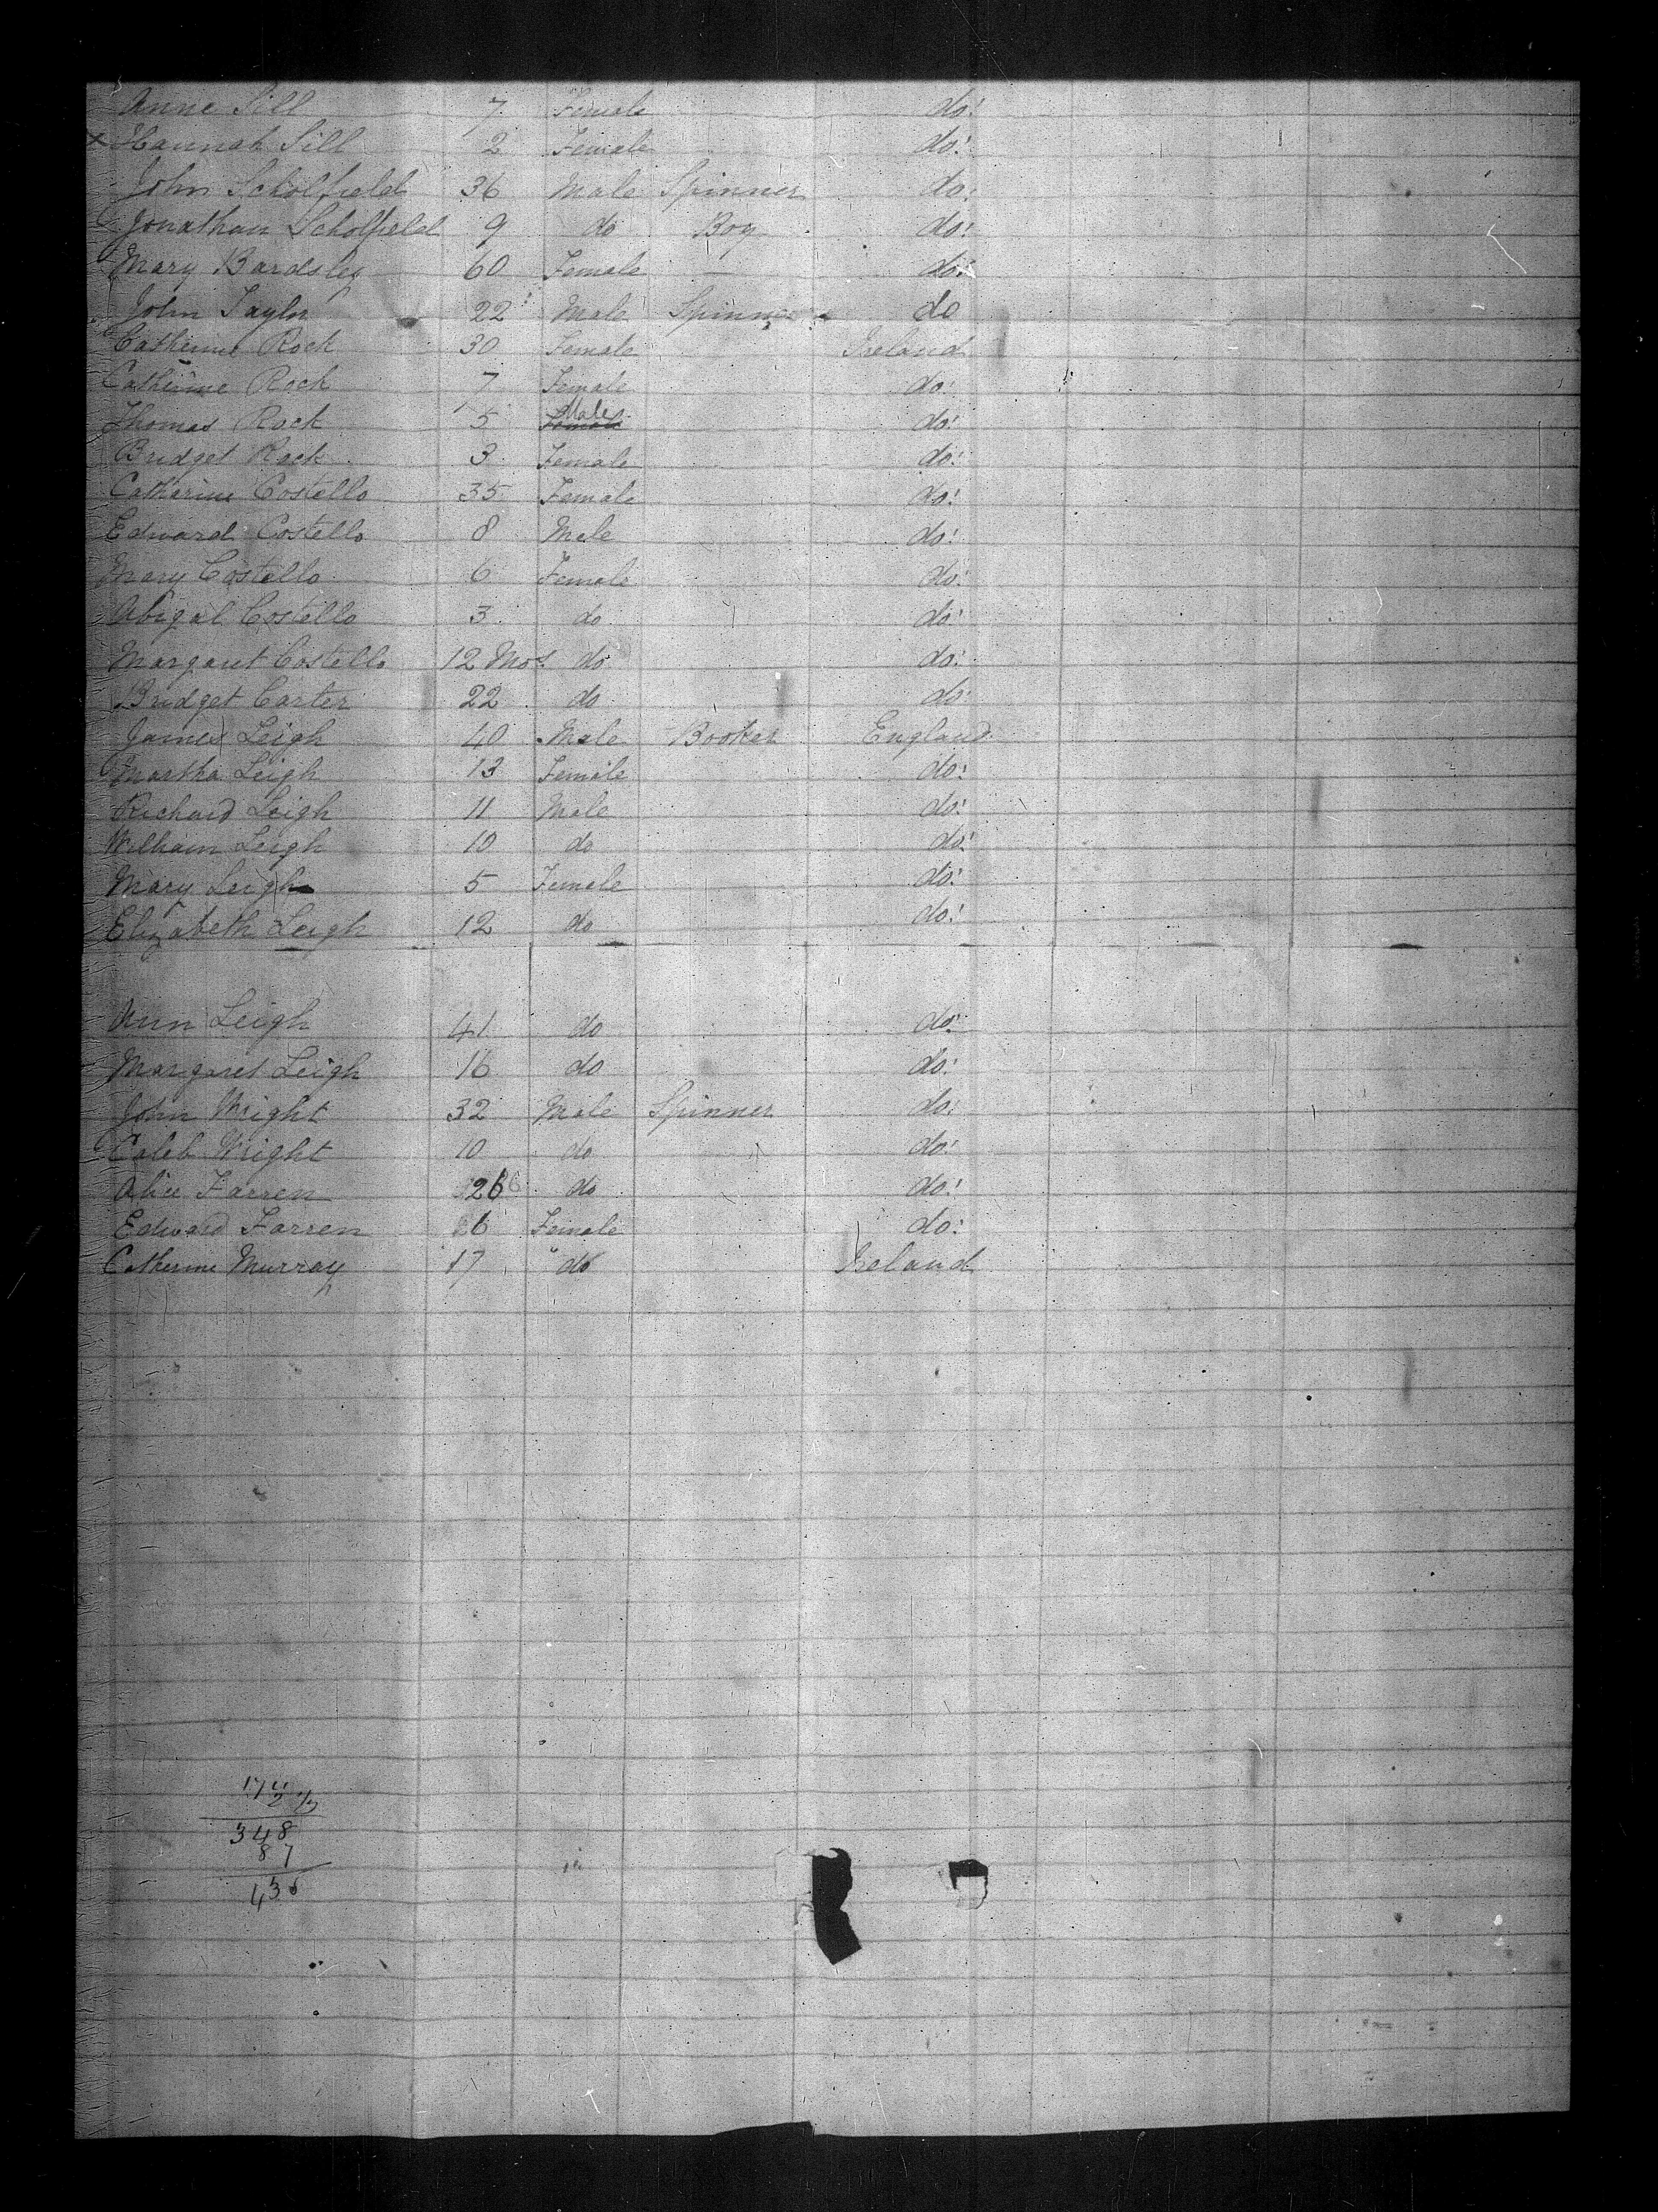 Anne Sill 7 Female do:
x Hannah Sill 2 Female do:
John Scholfield 36 Male Spinner do:
Jonathan Scholfield 9 do Boy do:
Mary Bardsley 60 Female do:
John Taylor 22 Male Spinner do
Catherine Rock 30 Female Ireland
Catherine Rock 7 Female do:
Thomas Rock 5 Male do:
Bridget Rock 3 Female do:
Catharine Costello 35 Female do:
Edward Costello 8 Male do:
Mary Costello 6 Female do:
Abigal Costello 3 do do:
Margaret Costello 12 Mos. do do:
Bridget Carter 22 do do:
James Leigh 40 Male England
Martha Leigh 13 Female do:
Richard Leigh 11 Male do:
William Leigh 10 do do:
Mary Leigh 5 Female do:
Elizabeth Leigh 12 do do:
Ann Leigh 41 do do:
Margaret Leigh 16 do do:
John Wright 32 Male Spinner do:
Caleb Wright 10 do do:
Alice Farren 26 do do:
Edward Farren 6 Female do:
Catherine Murray 17 " do Ireland
174
2 1/2
348
87
436